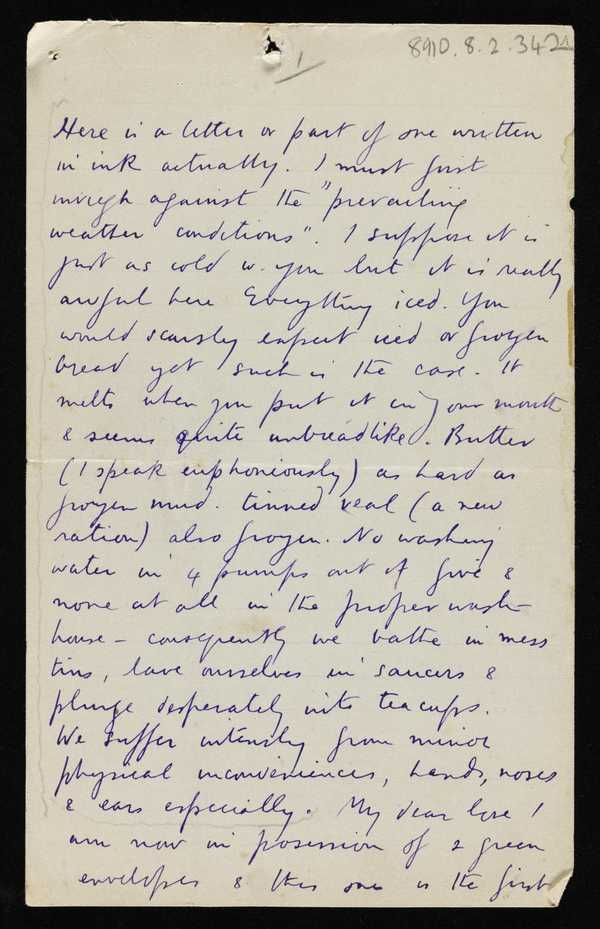 8910.8.2.342
1
Here is a letter or part of one written
in ink actually. I must first
inveigh against the "prevailing
weather conditions". I suppose it is
just as cold w. you but it is really
awful here Everything iced. You
would scarsley expect iced or frozen
bread yet such is the case. It
melts when you put it in your mouth
& seems quite unbreadlike. Butter
(I speak euphoniously) as hard as
frozen mud. tinned veal (a new
ration) also frozen. No washing
water in 4 pumps out of five &
none at all in the proper wash-
house - consequently we bathe in mess
tins, lave ourselves in saucers &
plunge desperately into teacups.
We suffer intensely from minor
physical inconveniences, hands, noses
& ears especially. My dear love I
am now in posession of 2 green
envelopes & this one is the first